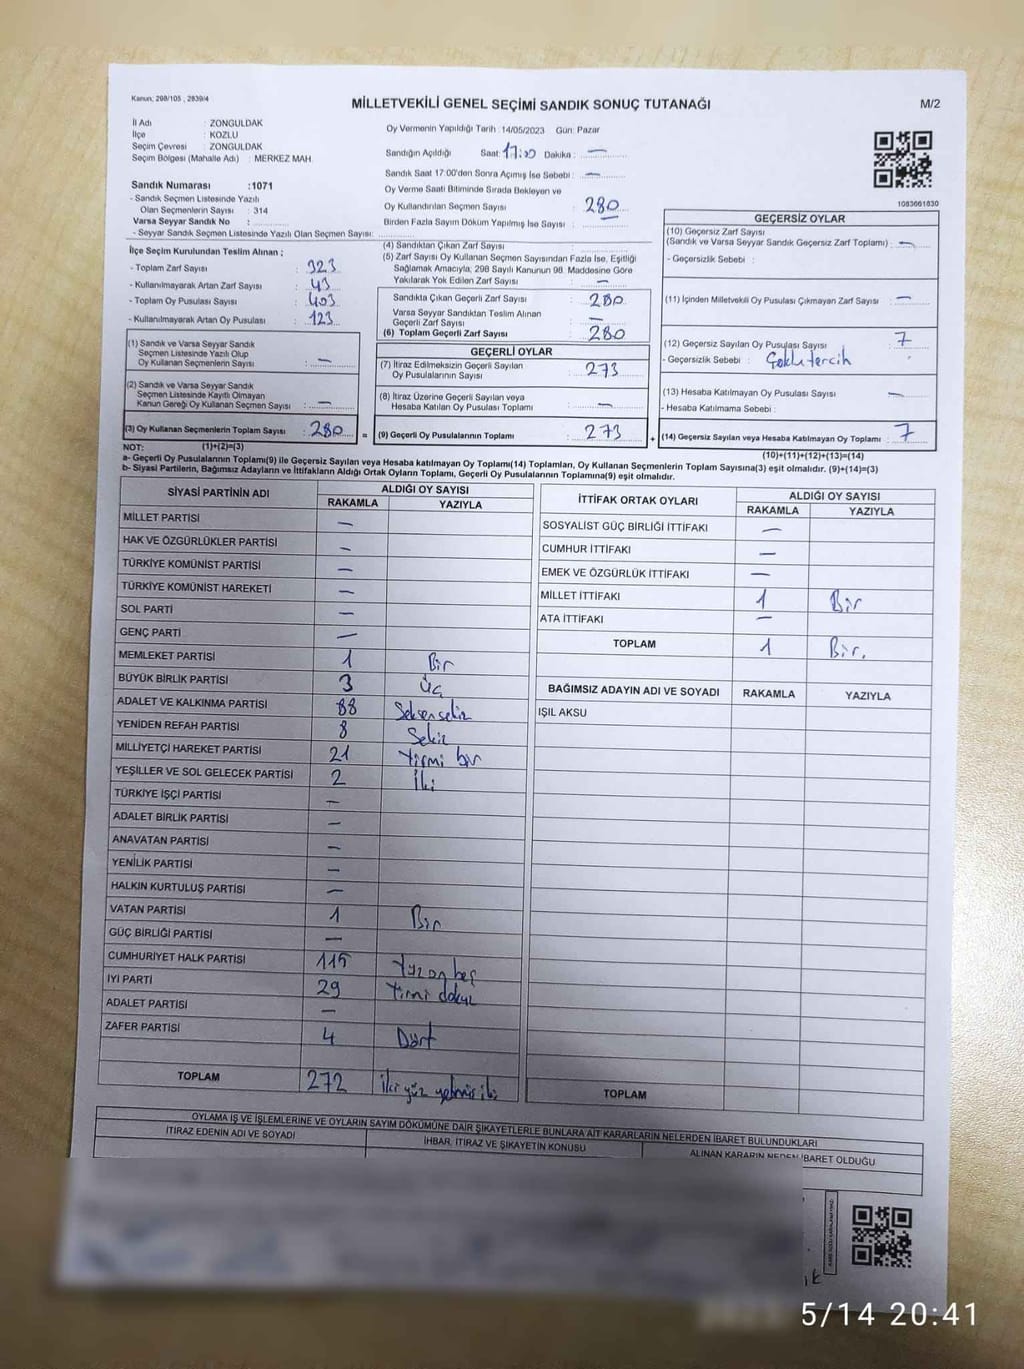 Kanun: 298/105 , 2839/4
MİLLETVEKİLİ GENEL SEÇİMİ SANDIK SONUÇ TUTANAĞI
M/2
İl Adı : ZONGULDAK
İlçe : KOZLU
Seçim Çevresi : ZONGULDAK
Seçim Bölgesi (Mahalle Adı) : MERKEZ MAH.
Sandık Numarası :1071
- Sandık Seçmen Listesinde Yazılı
Olan Seçmenlerin Sayısı : 314
Varsa Seyyar Sandık No :
- Seyyar Sandık Seçmen Listesinde Yazılı Olan Seçmen Sayısı:
Oy Vermenin Yapıldığı Tarih :14/05/2023 Gün: Pazar
Sandığın Açıldığı Saat: 17:00 Dakika : —
Sandık Saat 17:00'den Sonra Açımış İse Sebebi : —
Oy Verme Saati Bitiminde Sırada Bekleyen ve
Oy Kullandırılan Seçmen Sayısı : 280
Birden Fazla Sayım Döküm Yapılmış İse Sayısı :
1083661830
İlçe Seçim Kurulundan Teslim Alınan ;
- Toplam Zarf Sayısı : 323
- Kullanılmayarak Artan Zarf Sayısı : 43
- Toplam Oy Pusulası Sayısı : 403
- Kullanılmayarak Artan Oy Pusulası : 123
(1) Sandık ve Varsa Seyyar Sandık
Seçmen Listesinde Yazılı Olup
Oy Kullanan Seçmenlerin Sayısı : —
(2) Sandık ve Varsa Seyyar Sandık
Seçmen Listesinde Kayıtlı Olmayan
Kanun Gereği Oy Kullanan Seçmen Sayısı : —
(3) Oy Kullanan Seçmenlerin Toplam Sayısı : 280 =
(4) Sandıktan Çıkan Zarf Sayısı :
(5) Zarf Sayısı Oy Kullanan Seçmen Sayısından Fazla İse, Eşitliği
Sağlamak Amacıyla, 298 Sayılı Kanunun 98. Maddesine Göre
Yakılarak Yok Edilen Zarf Sayısı : —
Sandıkta Çıkan Geçerli Zarf Sayısı : 280
Varsa Seyyar Sandıktan Teslim Alınan
Geçerli Zarf Sayısı : —
(6) Toplam Geçerli Zarf Sayısı : 280
GEÇERLİ OYLAR
(7) İtiraz Edilmeksizin Geçerli Sayılan
Oy Pusulalarının Sayısı : 273
(8) İtiraz Üzerine Geçerli Sayılan veya
Hesaba Katılan Oy Pusulası Toplamı : —
(9) Geçerli Oy Pusulalarının Toplamı : 273 +
GEÇERSİZ OYLAR
(10) Geçersiz Zarf Sayısı
(Sandık ve Varsa Seyyar Sandık Geçersiz Zarf Toplamı) : —
- Geçersizlik Sebebi :
(11) İçinden Milletvekili Oy Pusulası Çıkmayan Zarf Sayısı : —
(12) Geçersiz Sayılan Oy Pusulası Sayısı : 7
- Geçersizlik Sebebi : Çoklu tercih
(13) Hesaba Katılmayan Oy Pusulası Sayısı : —
- Hesaba Katılmama Sebebi :
(14) Geçersiz Sayılan veya Hesaba Katılmayan Oy Toplamı : 7
NOT: (1)+(2)=(3) (10)+(11)+(12)+(13)=(14)
a- Geçerli Oy Pusulalarının Toplamı(9) ile Geçersiz Sayılan veya Hesaba katılmayan Oy Toplamı(14) Toplamları, Oy Kullanan Seçmenlerin Toplam Sayısına(3) eşit olmalıdır. (9)+(14)=(3)
b- Siyasi Partilerin, Bağımsız Adayların ve İttifakların Aldığı Ortak Oyların Toplamı, Geçerli Oy Pusulalarının Toplamına(9) eşit olmalıdır.
SİYASİ PARTİNİN ADI ALDIĞI OY SAYISI
RAKAMLA YAZIYLA
MİLLET PARTİSİ —
HAK VE ÖZGÜRLÜKLER PARTİSİ —
TÜRKİYE KOMÜNİST PARTİSİ —
TÜRKİYE KOMÜNİST HAREKETİ —
SOL PARTİ —
GENÇ PARTİ —
MEMLEKET PARTİSİ 1 Bir
BÜYÜK BİRLİK PARTİSİ 3 Üç
ADALET VE KALKINMA PARTİSİ 88 Seksen sekiz
YENİDEN REFAH PARTİSİ 8 Sekiz
MİLLİYETÇİ HAREKET PARTİSİ 21 Yirmi bir
YEŞİLLER VE SOL GELECEK PARTİSİ 2 İki
TÜRKİYE İŞÇİ PARTİSİ —
ADALET BİRLİK PARTİSİ —
ANAVATAN PARTİSİ —
YENİLİK PARTİSİ —
HALKIN KURTULUŞ PARTİSİ —
VATAN PARTİSİ 1 Bir
GÜÇ BİRLİĞİ PARTİSİ —
CUMHURİYET HALK PARTİSİ 115 Yüz on beş
İYİ PARTİ 29 Yirmi dokuz
ADALET PARTİSİ —
ZAFER PARTİSİ 4 Dört
TOPLAM 272 İki yüz yetmiş iki
İTTİFAK ORTAK OYLARI ALDIĞI OY SAYISI
RAKAMLA YAZIYLA
SOSYALİST GÜÇ BİRLİĞİ İTTİFAKI —
CUMHUR İTTİFAKI —
EMEK VE ÖZGÜRLÜK İTTİFAKI —
MİLLET İTTİFAKI 1 Bir
ATA İTTİFAKI —
TOPLAM 1 Bir.
BAĞIMSIZ ADAYIN ADI VE SOYADI RAKAMLA YAZIYLA
IŞIL AKSU
TOPLAM
OYLAMA İŞ VE İŞLEMLERİNE VE OYLARIN SAYIM DÖKÜMÜNE DAİR ŞİKAYETLERLE BUNLARA AİT KARARLARIN NELERDEN İBARET BULUNDUKLARI
İTİRAZ EDENİN ADI VE SOYADI İHBAR, İTİRAZ VE ŞİKAYETİN KONUSU ALINAN KARARIN NEDEN İBARET OLDUĞU
5/14 20:41